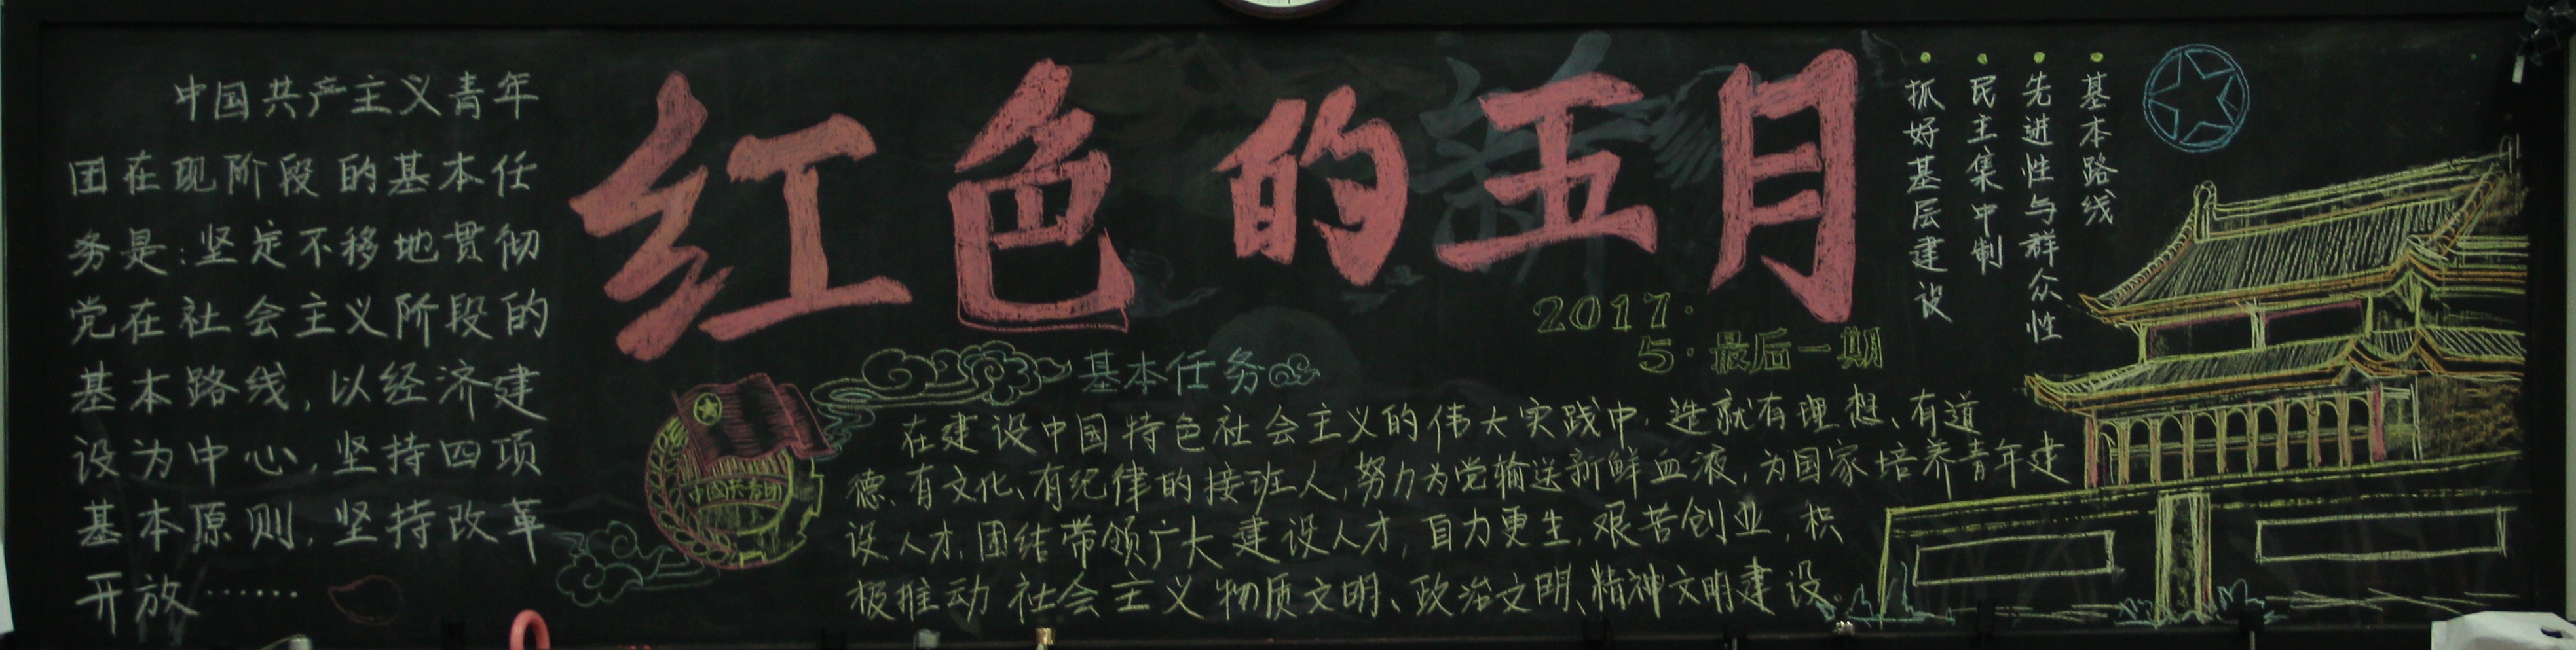 中国共产主义青年
团在现阶段的基本任
务是:坚定不移地贯彻
党在社会主义阶段的
基本路线,以经济建
设为中心,坚持四项
基本原则,坚持改革
开放……
红色的五月
2017.
5.最后一期
基本任务
中国共青团
在建设中国特色社会主义的伟大实践中,造就有理想、有道
德、有文化、有纪律的接班人,努力为党输送新鲜血液,为国家培养青年建
设人才,团结带领广大建设人才,自力更生,艰苦创业,积
极推动社会主义物质文明、政治文明、精神文明建设。
基本路线
先进性与群众性
民主集中制
抓好基层建设